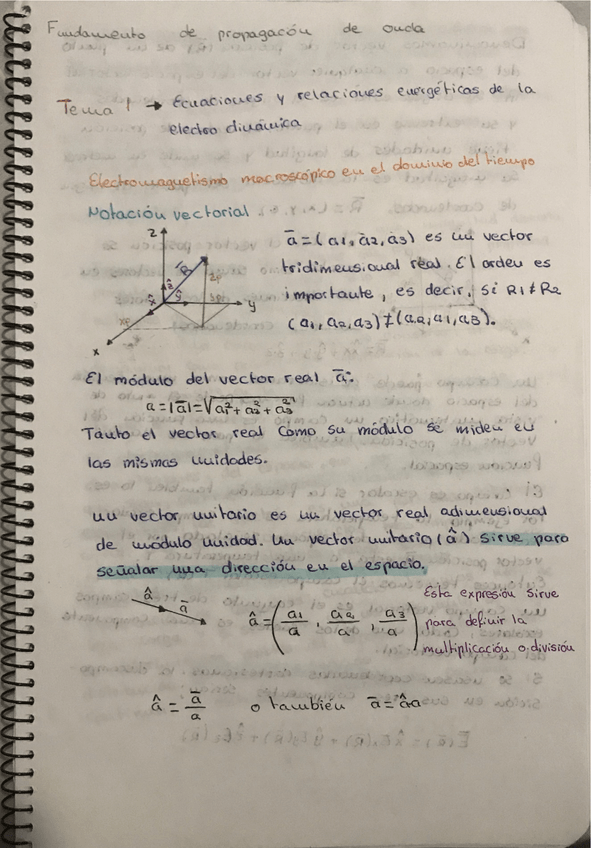 Fundamento de propagación de onda
Tema 1 → Ecuaciones y relaciones energéticas de la
electrodinámica
Electromagnetismo macroscópico en el dominio del tiempo
Notación vectorial
z
y
x
ā = (a1, a2, a3) es un vector
tridimensional real. El orden es
importante, es decir, si R1 ≠ R2
(a1, a2, a3) ≠ (a2, a1, a3).
El módulo del vector real ā:
a = |ā| = √(a1² + a2² + a3²)
Tanto el vector real como su módulo se miden en
las mismas unidades.
un vector unitario es un vector real adimensional
de módulo unidad. Un vector unitario (â) sirve para
señalar una dirección en el espacio.
â
ā
â = (a1/a, a2/a, a3/a)
Esta expresión sirve
para definir la
multiplicación o división
â = ā/a o también ā = âa